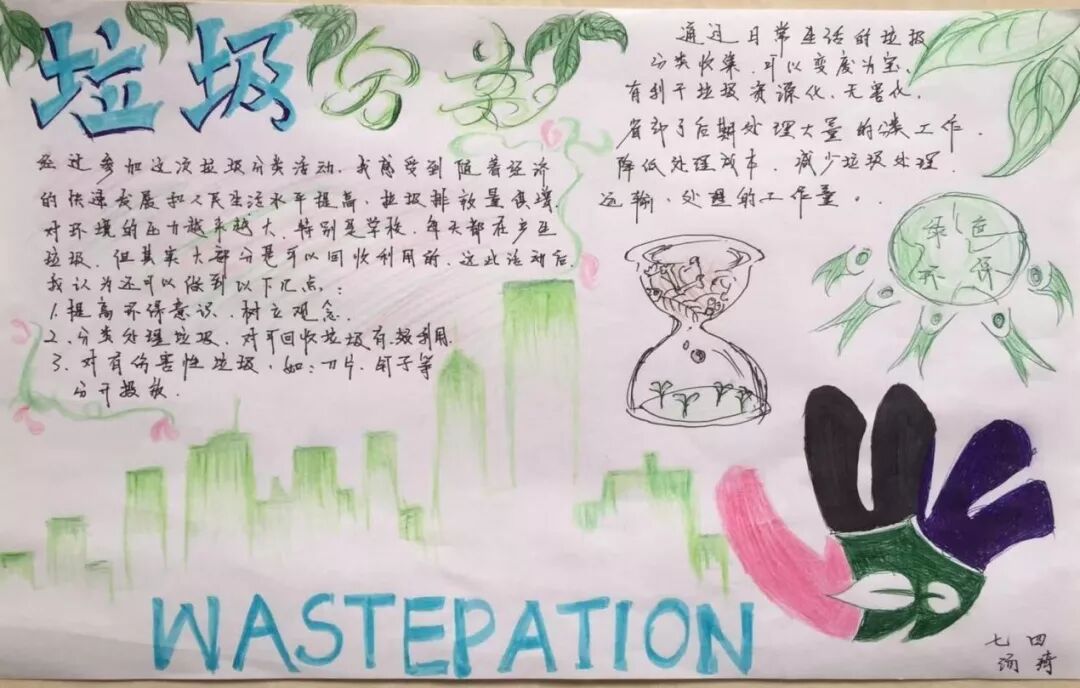 垃圾分类
经过参加这次垃圾分类活动,我感受到随着经济
的快速发展和人民生活水平提高,垃圾排放量俱增
对环境的压力越来越大,特别是学校,每天都在产生
垃圾,但其实大部分是可以回收利用的,这此活动后
我认为还可以做到以下几点:
1.提高环保意识,树立观念.
2、分类处理垃圾,对可回收垃圾有效利用.
3、对有伤害性垃圾,如:刀片,钉子等
分开投放.
通过日常生活的垃圾
分类收集,可以变废为宝,
有利于垃圾资源化、无害化,
省却了后期处理大量的分类工作.
降低处理成本,减少垃圾处理
运输,处理的工作量。
绿色
环保
WASTEPATION
七 四
汤 琦